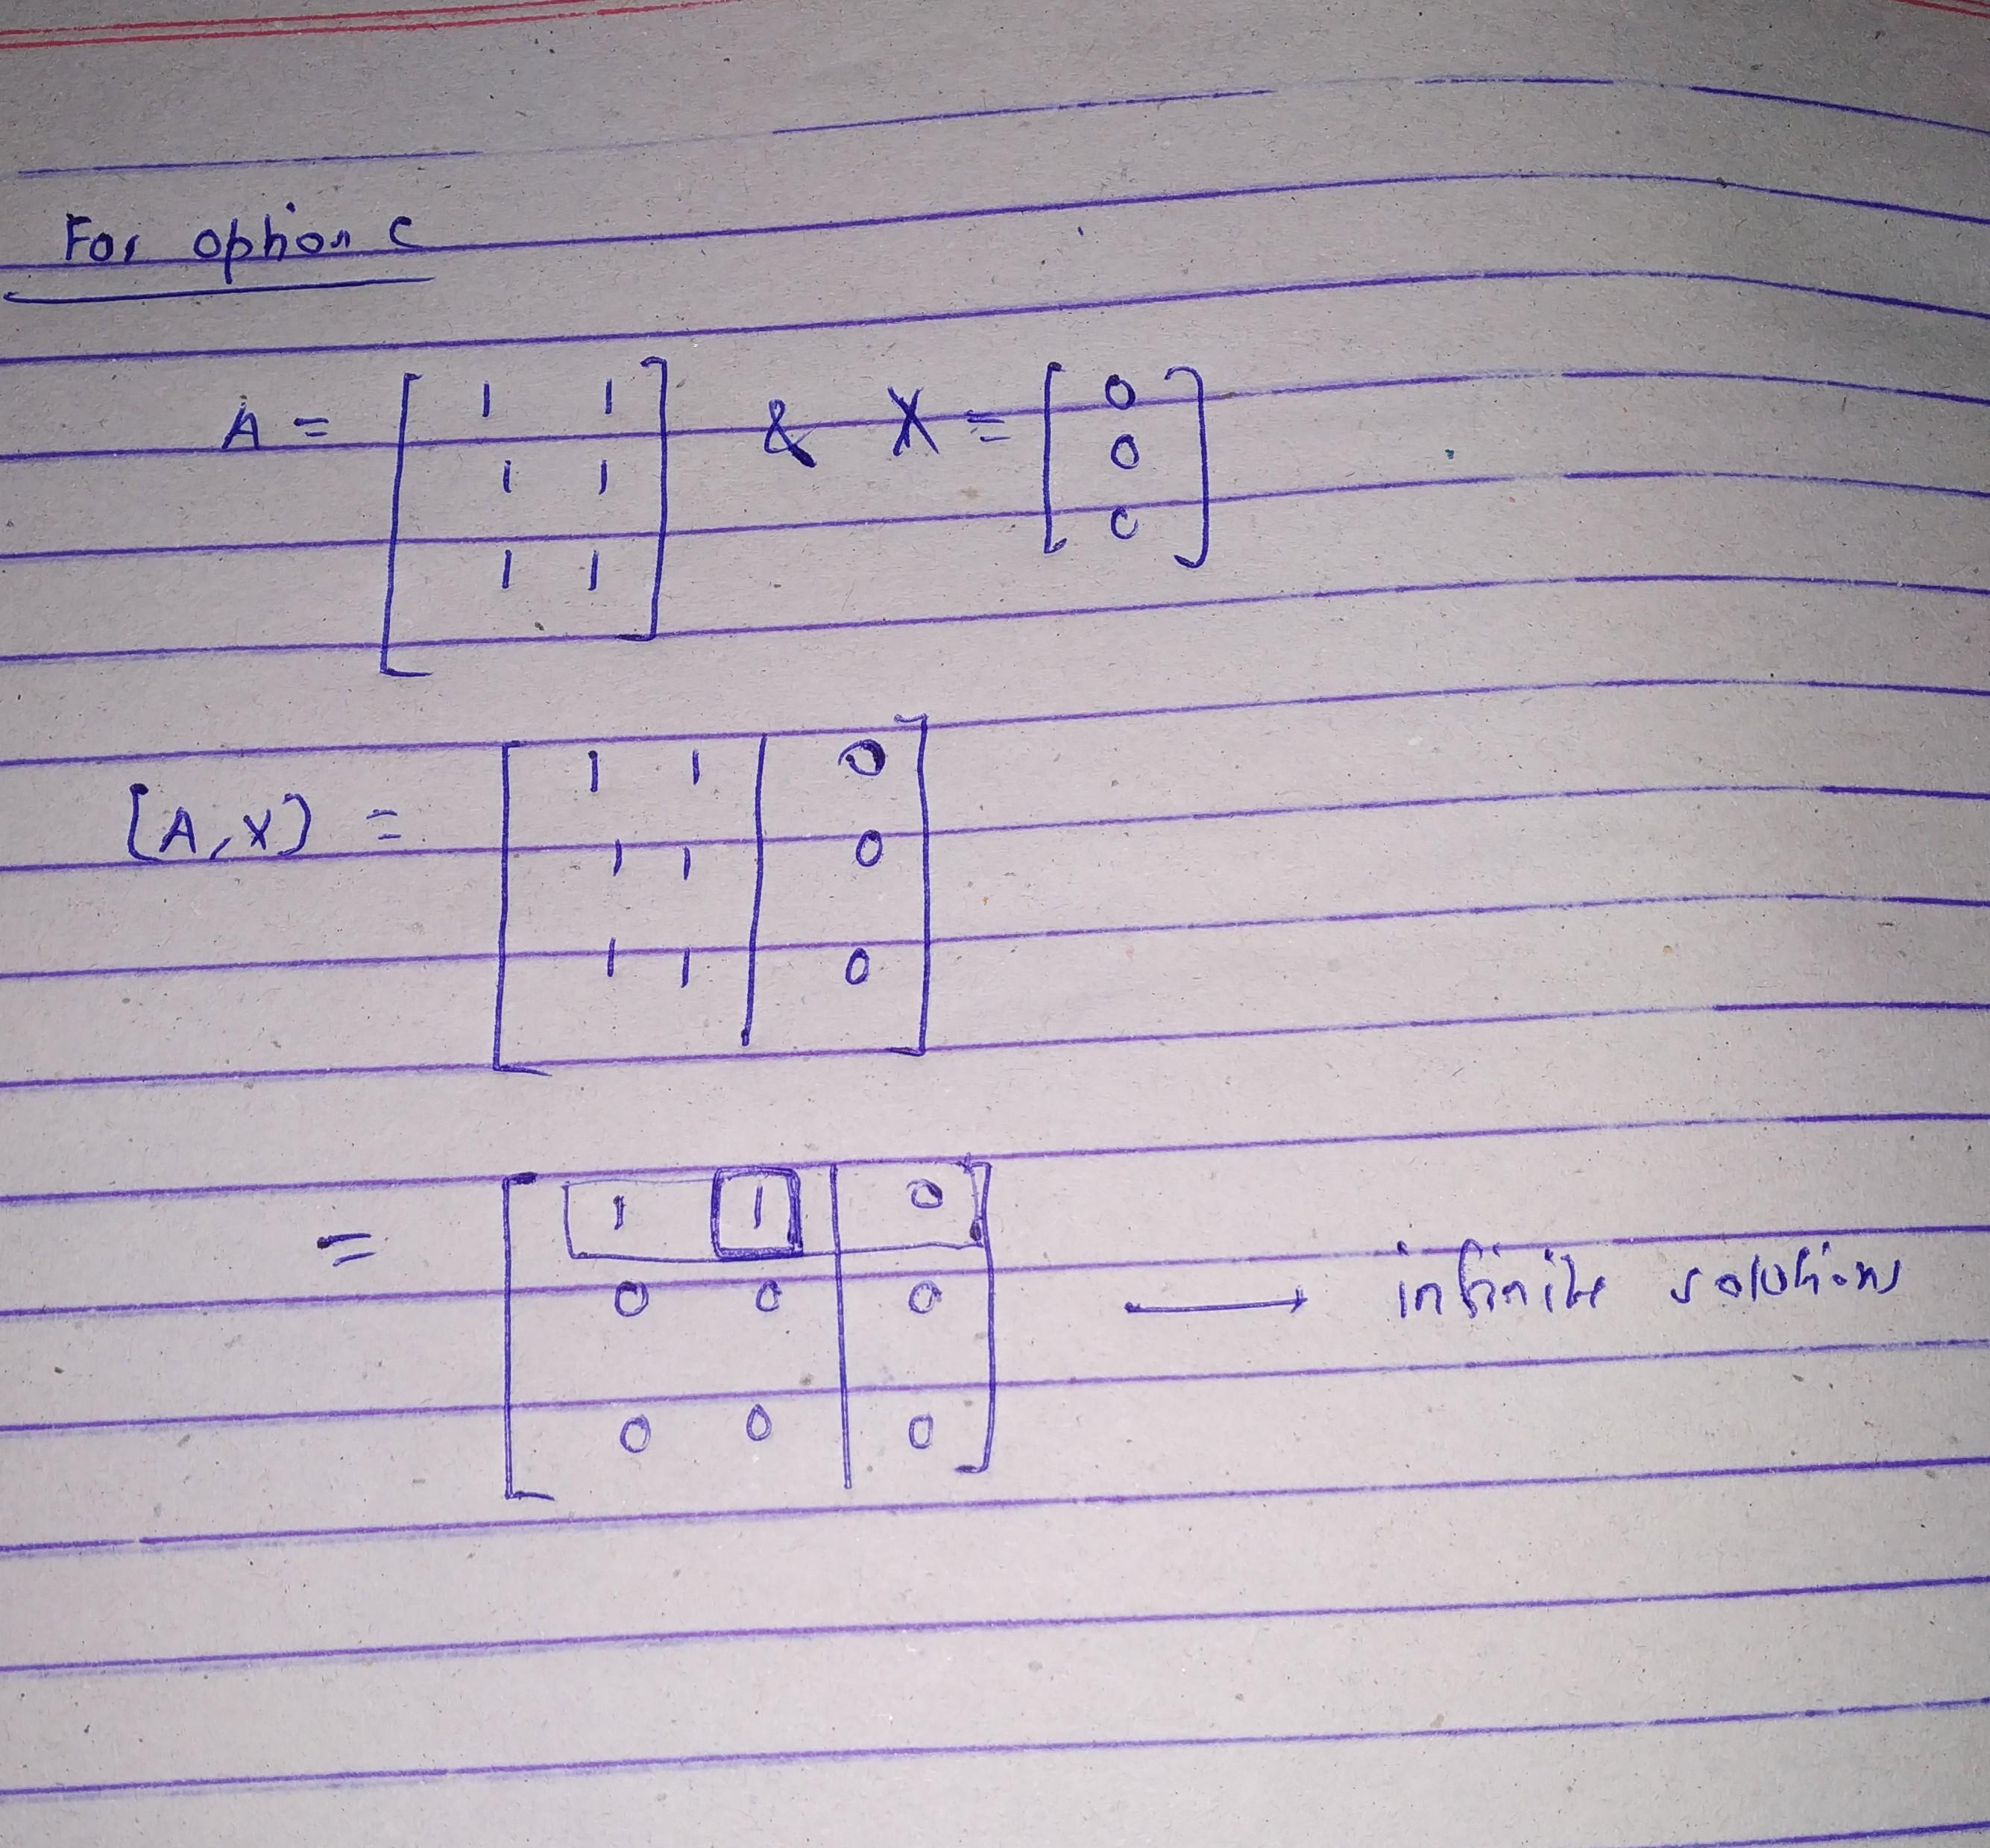 For option C
A = [ 1 1 & X = [ 0
1 1 0
1 1 ] 0 ]
[A, X] = [ 1 1 | 0
1 1 | 0
1 1 | 0 ]
= [ 1 1 | 0
0 0 | 0 → infinite solutions
0 0 | 0 ]